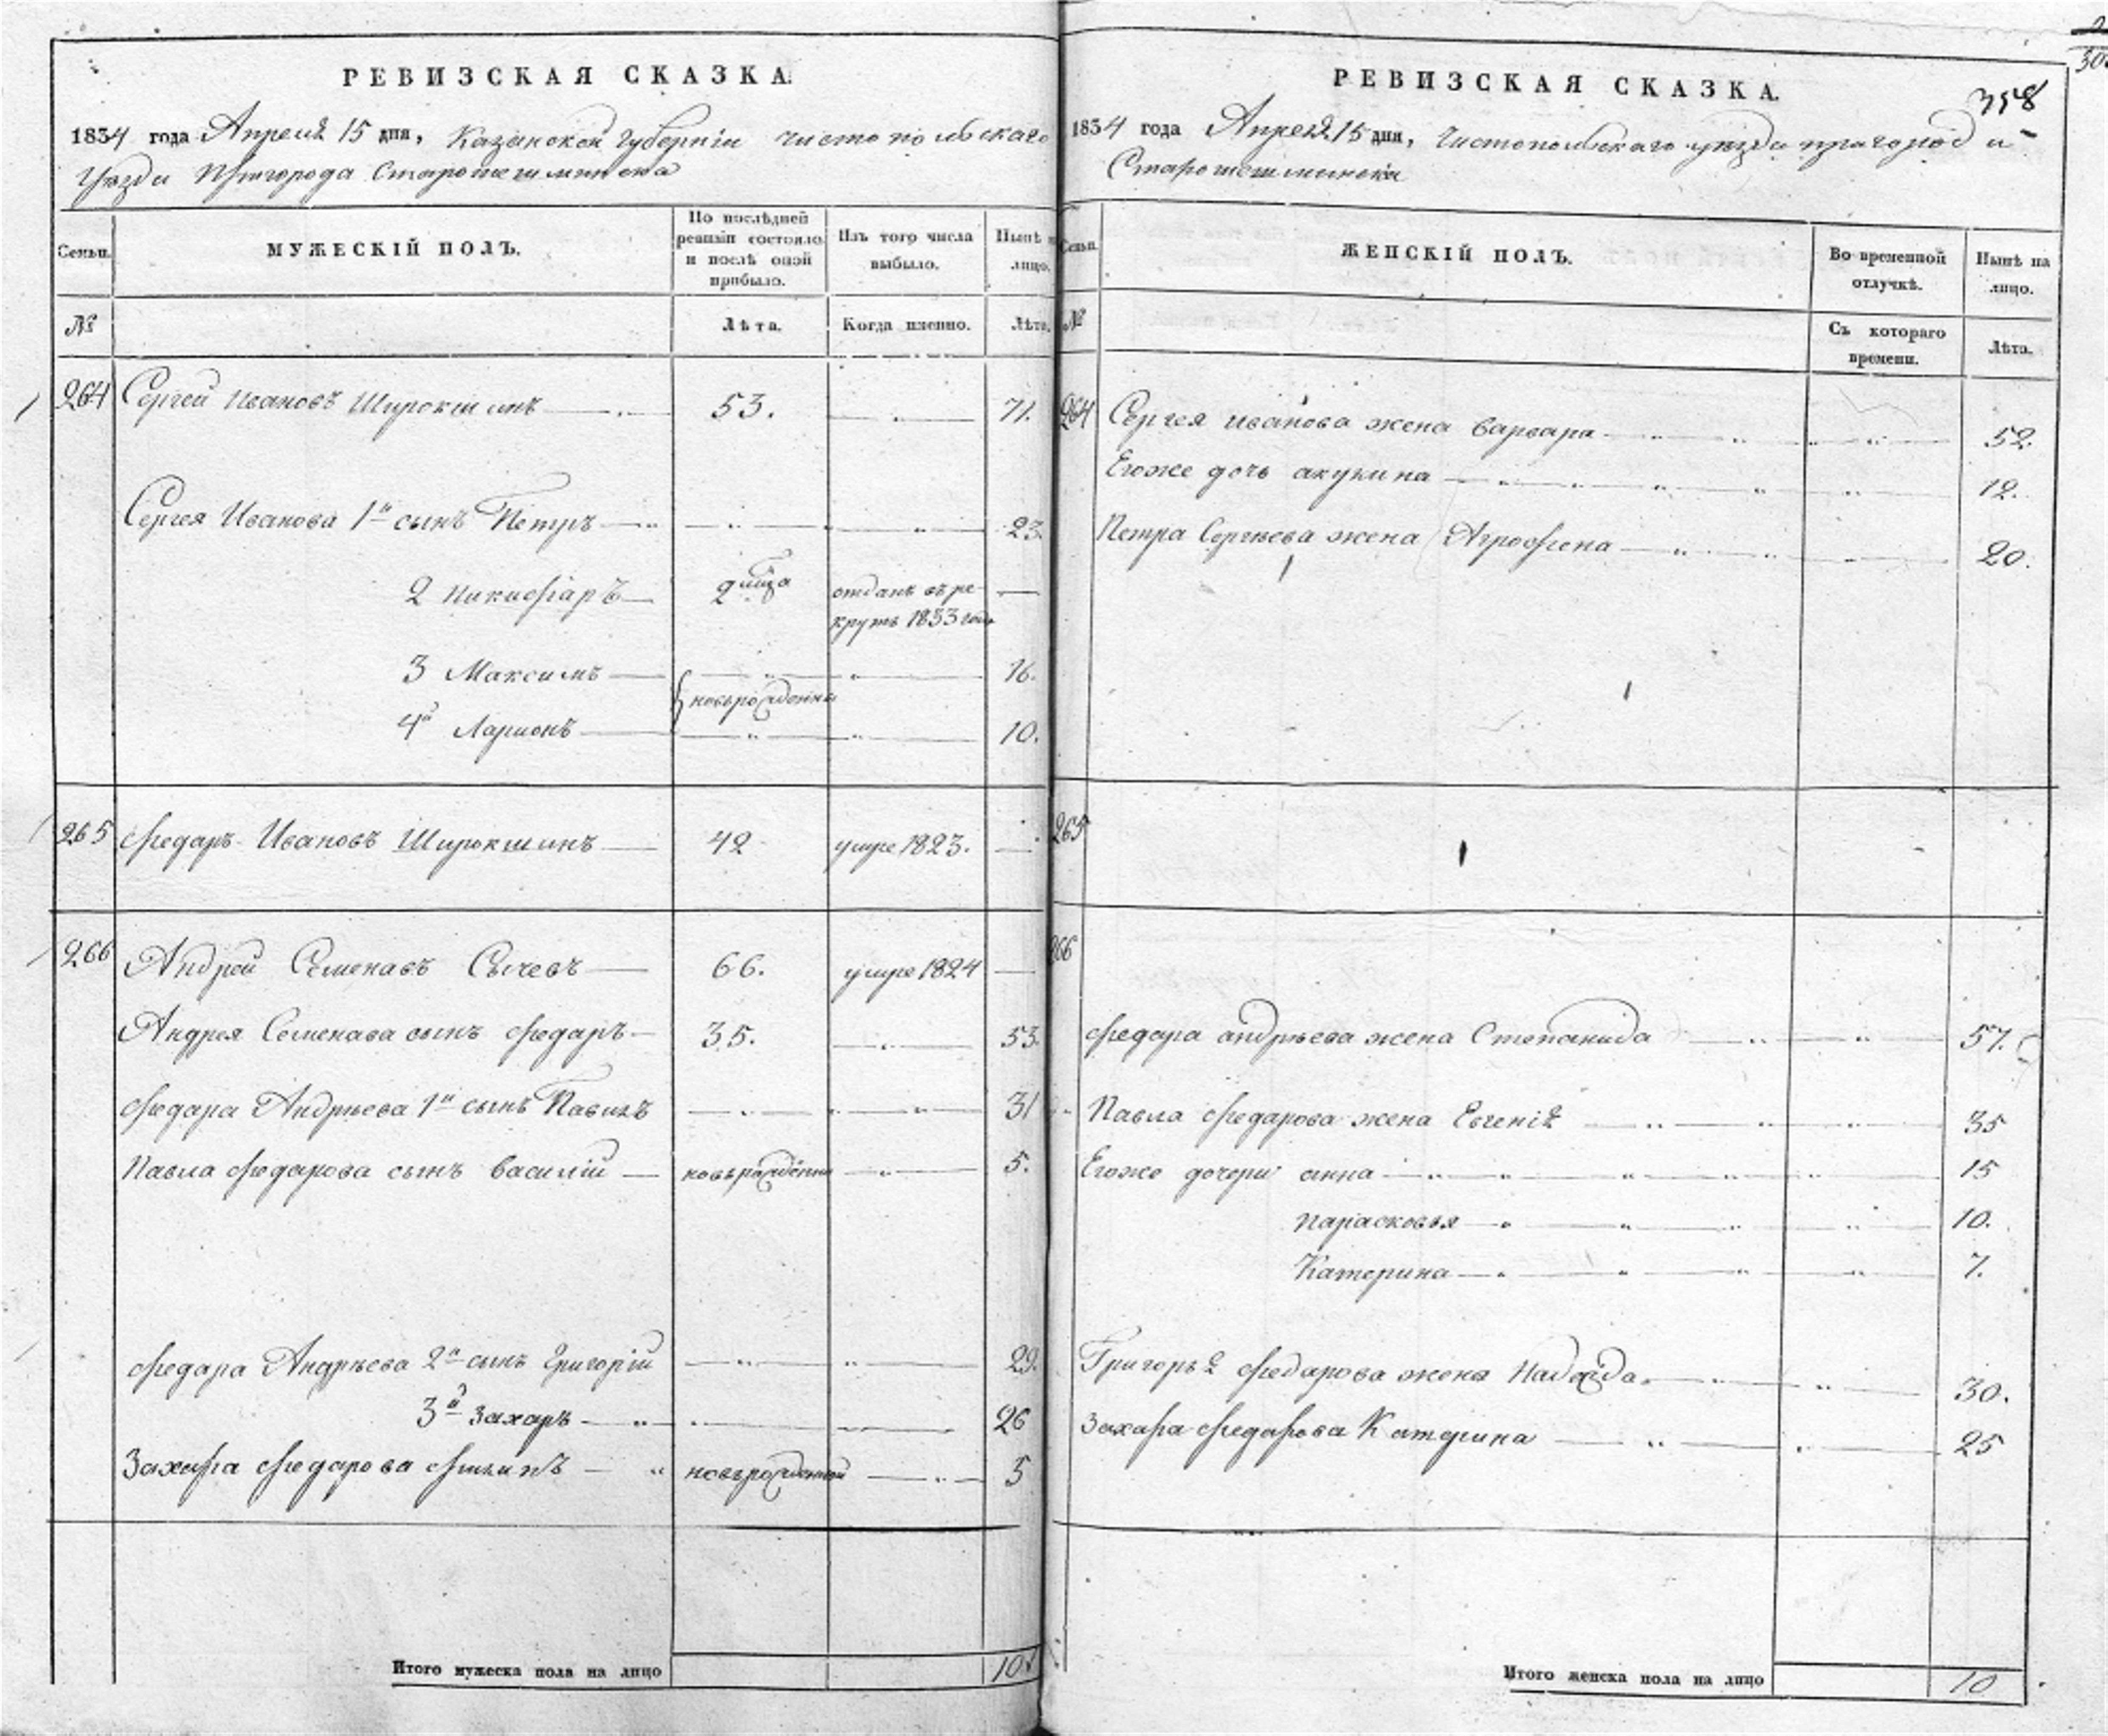 РЕВИЗСКАЯ СКАЗКА.
1834 года Апреля 15 дня, Казанской Губернiи Чистопольскаго
Уѣзда Пригорода Старошешминска
Семьи.
МУЖЕСКІЙ ПОЛЪ.
По послѣдней ревизіи состояло и послѣ оной прибыло.
Изъ того числа выбыло.
Нынѣ на лицо.
№
Лѣта.
Когда именно.
Лѣта.
264 Сергей Ивановъ Широкшинъ 53. 71.
Сергея Иванова 1й сынъ Петръ 23.
2 Никифаръ 2 мца отданъ въ ре-
крутъ 1833 года
3 Максимъ 16.
новърожденны
4й Ларионъ 10.
265 Федаръ Ивановъ Широкшинъ 42 умре 1823.
266 Андрей Семенавъ Сычевъ 66. умре 1824
Андрея Семенава сынъ Федаръ 35. 53.
Федара Андрѣева 1й сынъ Павилъ 31
Павла Федарова сынъ Василiй новърожденны 5.
Федара Андрѣева 2й сынъ Григорiй 29.
3й Захаръ 26
Захара Федарова новърожденный 5
Итого мужеска пола на лицо 10
РЕВИЗСКАЯ СКАЗКА.
358
1834 года Апреля 15 дня, Чистопольскаго уѣзда пригорода
Старошешминска
Семьи.
ЖЕНСКІЙ ПОЛЪ.
Во временной отлучкѣ.
Нынѣ на лицо.
№
Съ котораго времени.
Лѣта.
264 Сергея Иванова жена Варвара 52.
Егоже дочь акулина 12.
Петра Сергѣева жена Агрофена 20.
265
266
Федара андрѣева жена Степанида 57.
Павла Федарова жена Евгенiя 35
Егоже дочери анна 15
Парасковья 10.
Катерина 7.
Григорья Федарова жена Надежда 30.
Захара Федарова Катерина 25
Итого женска пола на лицо 10